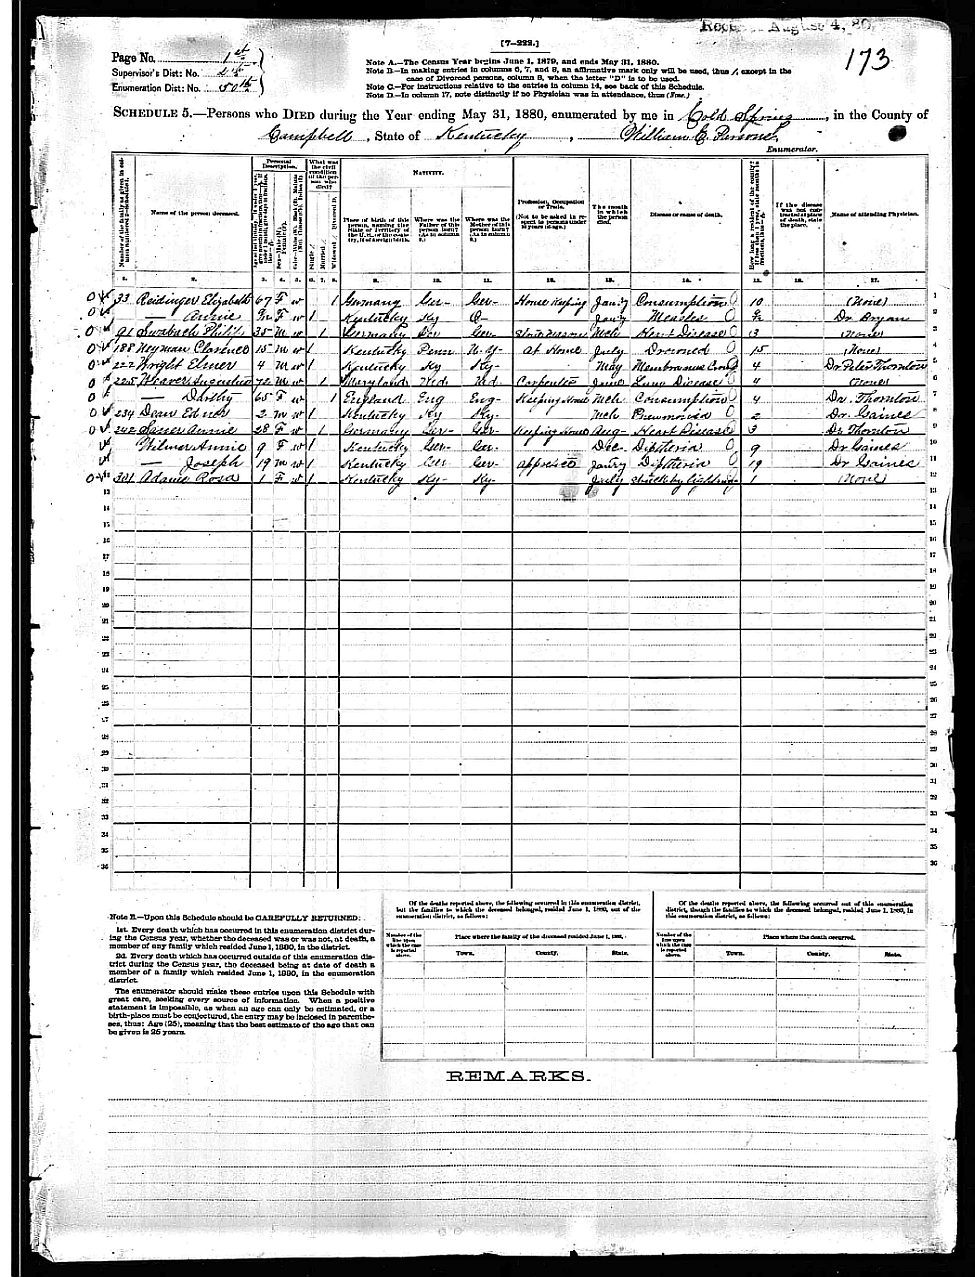 Received August 4, 80.
[7-222.]
173
Page No. 1st
Supervisor's Dist: No.
Enumeration Dist: No. 50th
Note A.—The Census Year begins June 1, 1879, and ends May 31, 1880.
Note B.—In making entries in columns 6, 7, and 8, an affirmative mark only will be used, thus /, except in the
case of Divorced persons, column 8, when the letter "D" is to be used.
Note C.—For instructions relative to the entries in column 14, see back of this Schedule.
Note D.—In column 17, note distinctly if no Physician was in attendance, thus (None.)
SCHEDULE 5.—Persons who DIED during the Year ending May 31, 1880, enumerated by me in Cold Spring, in the County of
Campbell, State of Kentucky, William E. Persons
Enumerator.
Name of the person deceased.
Personal Description.
What was the civil condition of the person who died?
NATIVITY.
Place of birth of this person, naming the State or Territory of the U.S., or the country, if of foreign birth.
Where was the Father of this person born? (As in column 9.)
Where was the Mother of this person born? (As in column 9.)
Profession, Occupation or Trade. (Not to be asked in respect to persons under 10 years of age.)
The month in which the person died.
Disease or cause of death.
If the disease was not contracted at place of death, state the place.
Name of attending Physician.
33 Reidinger Elizabeth 67 F w 1 Germany Ger- Ger- House Keeping Jan'y Consumption 10 (None)
— Annie F w 1 Kentucky Ky Jan'y Measles Dr Bryan
91 Swabach Philip 35 M w 1 Germany Ger- Stone Mason Mch Heart Disease 3 (None)
188 Heyman Clarence 15 M w 1 Kentucky Penn N.Y- At Home July Drowned 15 (None)
222 Wright Elmer 4 M w 1 Kentucky Ky Ky- May Membranous Croup 4 Dr Peter Thornton
225 Weaver Augustus 72 M w 1 Maryland Md- Md- Carpenter June Lung Disease (None)
— Dorothy 65 F w 1 England Eng Eng- Keeping House Mch Consumption 4 Dr. Thornton
234 Dean Edner 2 M w 1 Kentucky Ky Ky- Mch Pneumonia 2 Dr. Gaines
242 Annie 28 F w 1 Germany Ger- Ger- Keeping House Aug- Heart Disease 3 Dr Thornton
Wilmer Annie 9 F w 1 Kentucky Ger- Ger- Dec- Diptheria 9 Dr Gaines
— Joseph 19 M w 1 Kentucky Ger Ger- Jan'ry Diptheria 19 Dr Gaines
301 Adams Rosa 1 F w 1 Kentucky Ky- Ky- July struck by lightning 1 (None)
Note E.—Upon this Schedule should be CAREFULLY RETURNED:
1st. Every death which has occurred in this enumeration district during
the Census year, whether the deceased was or was not, at death, a
member of any family which resided June 1, 1880, in the district.
2d. Every death which has occurred outside of this enumeration district
during the Census year, the deceased being at date of death a
member of a family which resided June 1, 1880, in the enumeration
district.
The enumerator should make these entries upon this Schedule with
great care, seeking every source of information. When a positive
statement is impossible, as when an age can only be estimated, or a
birth-place must be conjectured, the entry may be inclosed in parentheses,
thus: Age (25), meaning that the best estimate of the age that can
be given is 25 years.
Of the deaths reported above, the following occurred in this enumeration district,
but the families to which the deceased belonged, resided June 1, 1880, out of the
enumeration district, as follows:
Number of the line upon which the case is reported above.
Place where the family of the deceased resided June 1, 1880.
Town. County. State.
Of the deaths reported above, the following occurred out of this enumeration
district, though the families to which the deceased belonged, resided June 1, 1880, in
this enumeration district, as follows:
Number of the line upon which the case is reported above.
Place where the death occurred.
Town. County. State.
REMARKS.